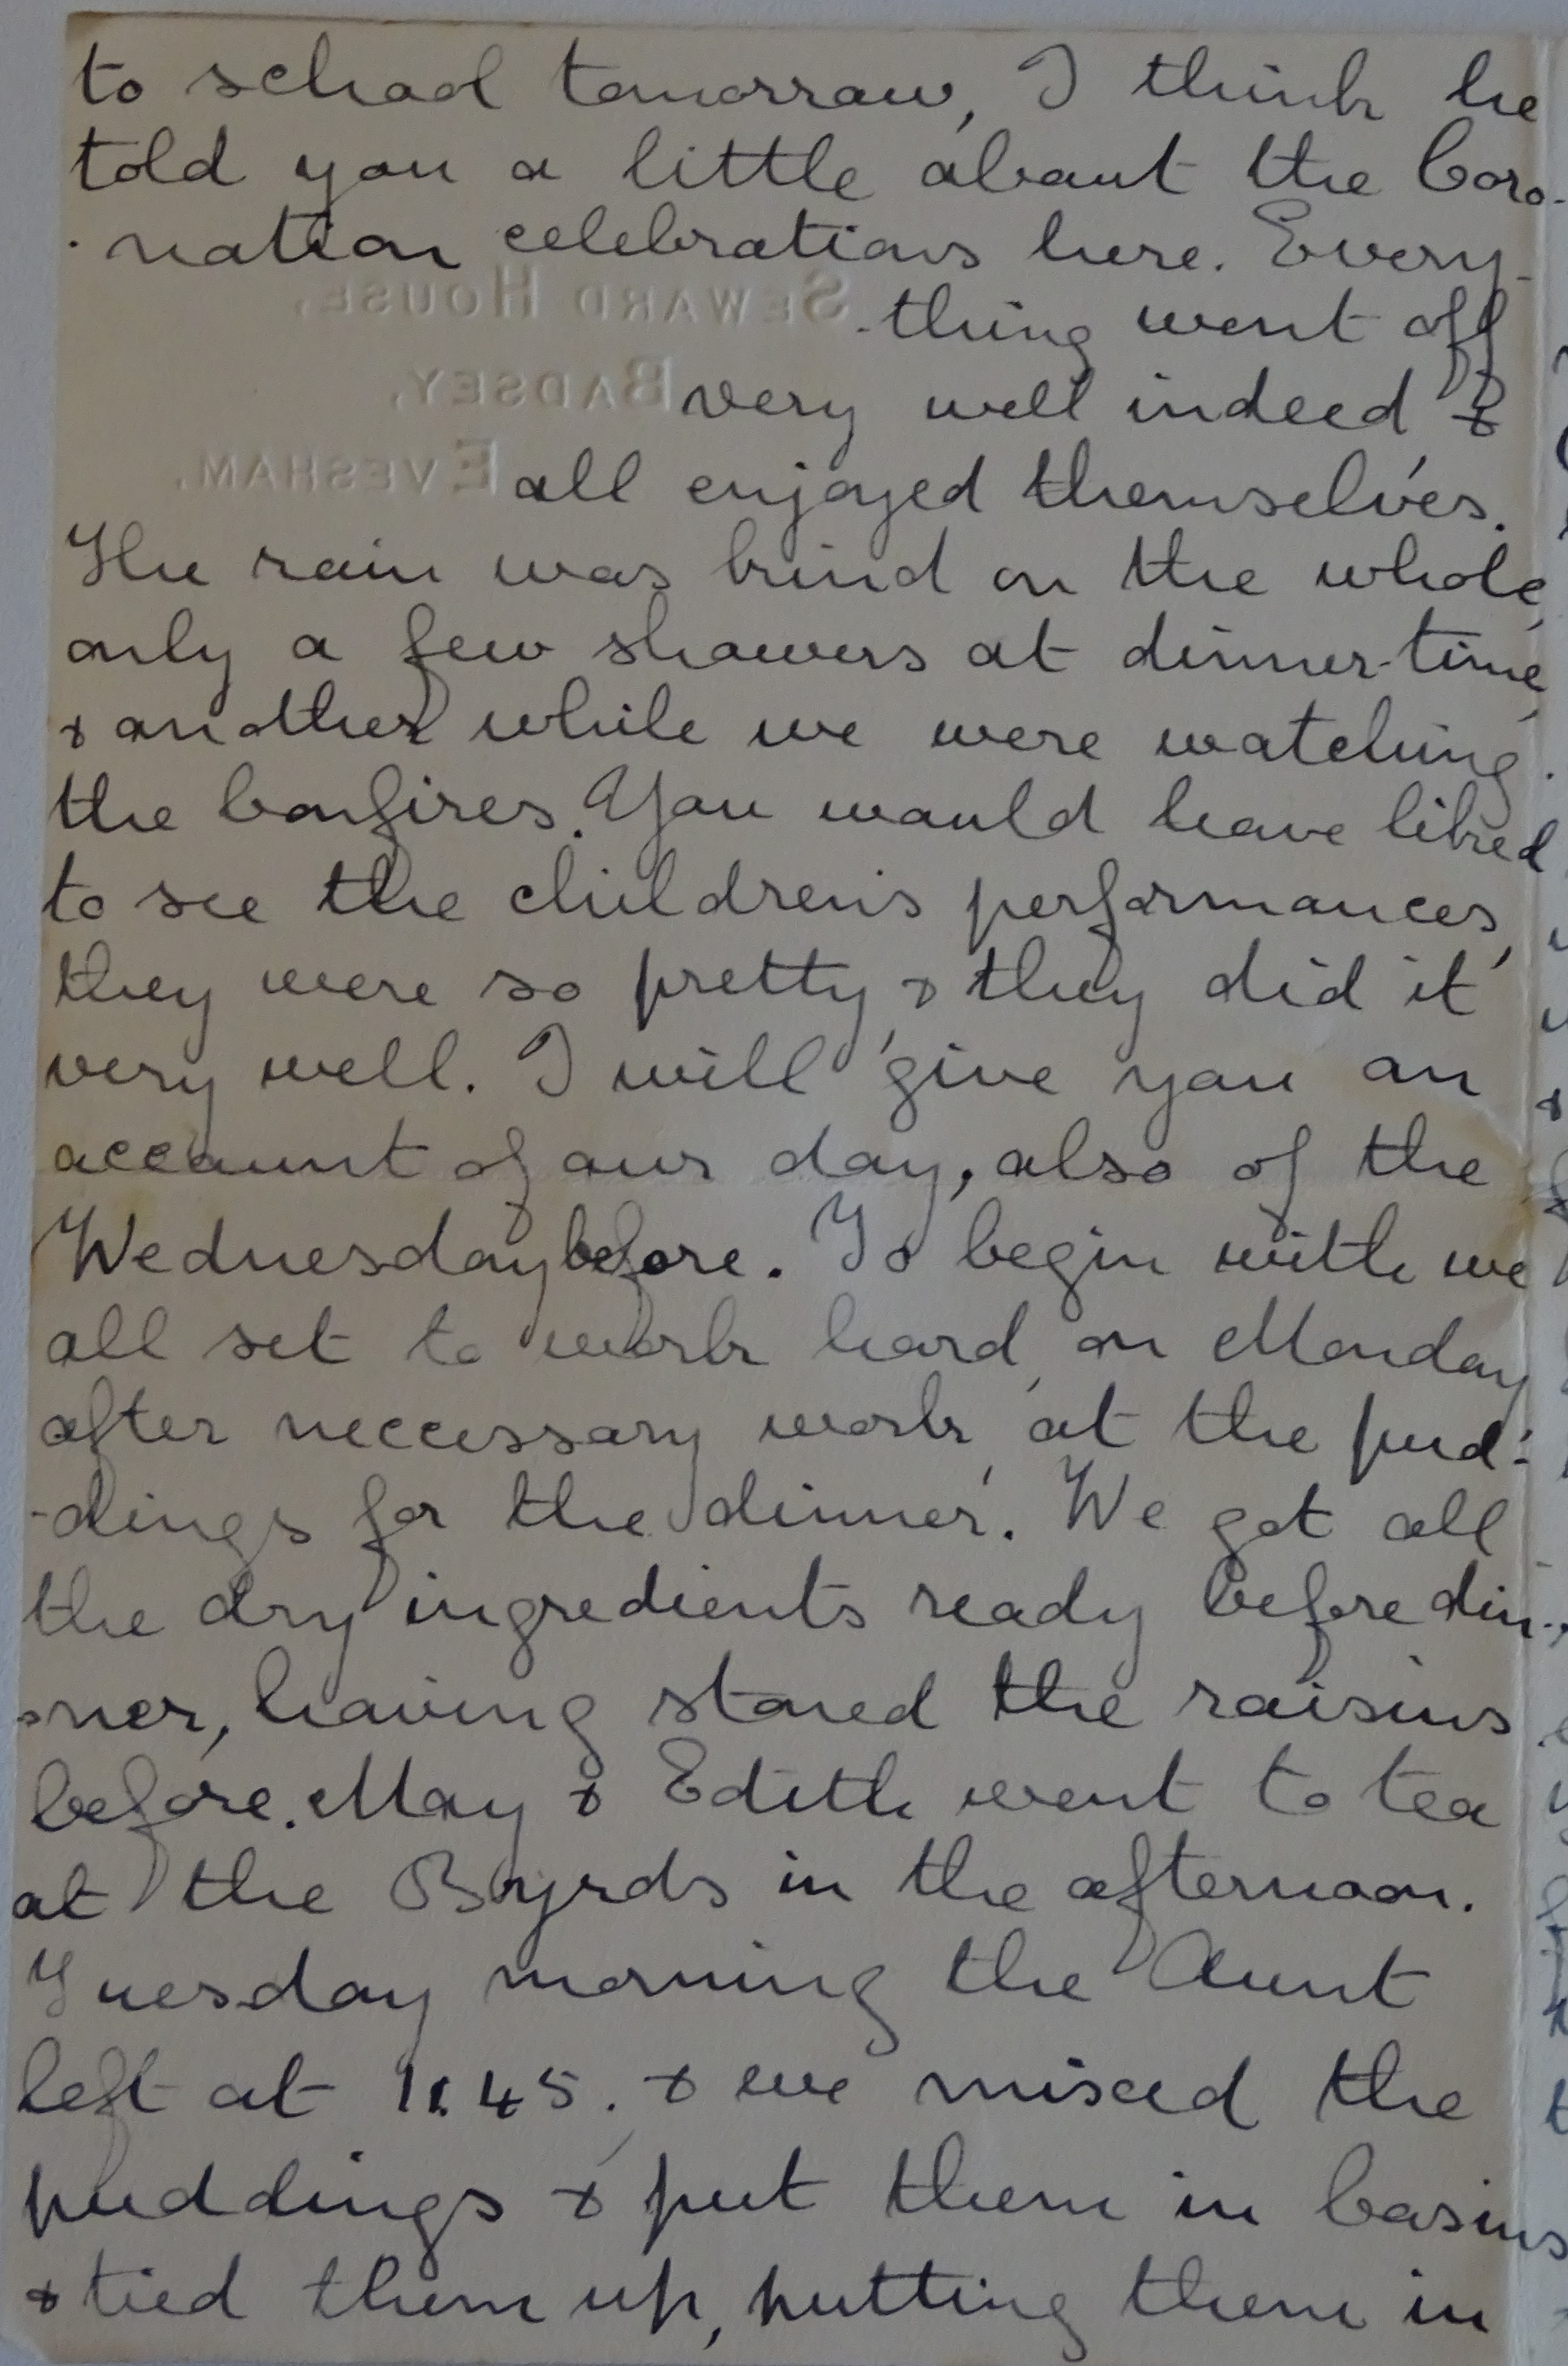 to school tomorrow, I think he
told you a little about the Coro-
-nation celebrations here. Every-
SEWARD HOUSE,
-thing went off
BADSEY,
very well indeed &
EVESHAM.
all enjoyed themselves.
The rain was kind on the whole,
only a few showers at dinner-time,
& another while we were watching
the bonfires. You would have liked
to see the children's performances,
they were so pretty, & they did it
very well. I will give you an
account of our day, also of the
Wednesday before. To begin with we
all set to work hard, on Monday
after neccessary work, at the pud-
-dings for the dinner. We got all
the dry ingredients ready before din-
-ner, having stoned the raisins
before. May & Edith went to tea
at the Byrds in the afternoon.
Tuesday morning the Aunt
left at 11.45. & we mixed the
puddings & put them in basins
& tied them up, putting them in